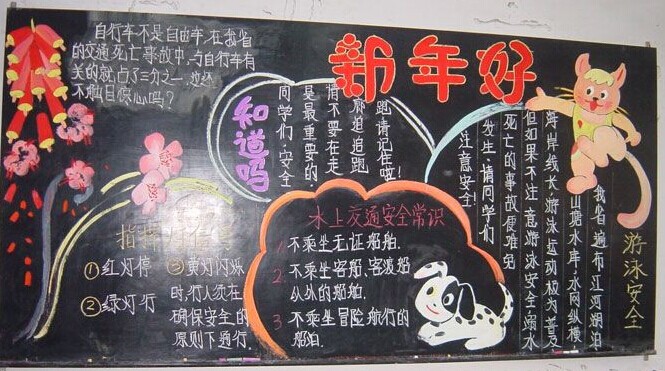 新年好
自行车不是自由车,在我省
的交通死亡事故中,与自行车有
关的就占了三分之一,这还
不触目惊心吗?
知道吗
同学们,安全
是最重要的,
请不要在走
廊追追跑
跑请记住啦!
水上交通安全常识
1 不乘坐无证船舶.
2. 不乘坐客船、客渡船
以外的船舶.
3 不乘坐冒险航行的
船舶.
①红灯停
②绿灯行
③黄灯闪烁
时,行人须在
确保安全的
原则下通行.
游泳安全
我省遍布江河湖泊
山塘水库,水网纵横
海岸线长,游泳运动极为普及
但如果不注意游泳安全,溺水
死亡的事故便难免
发生,请同学们
注意安全!